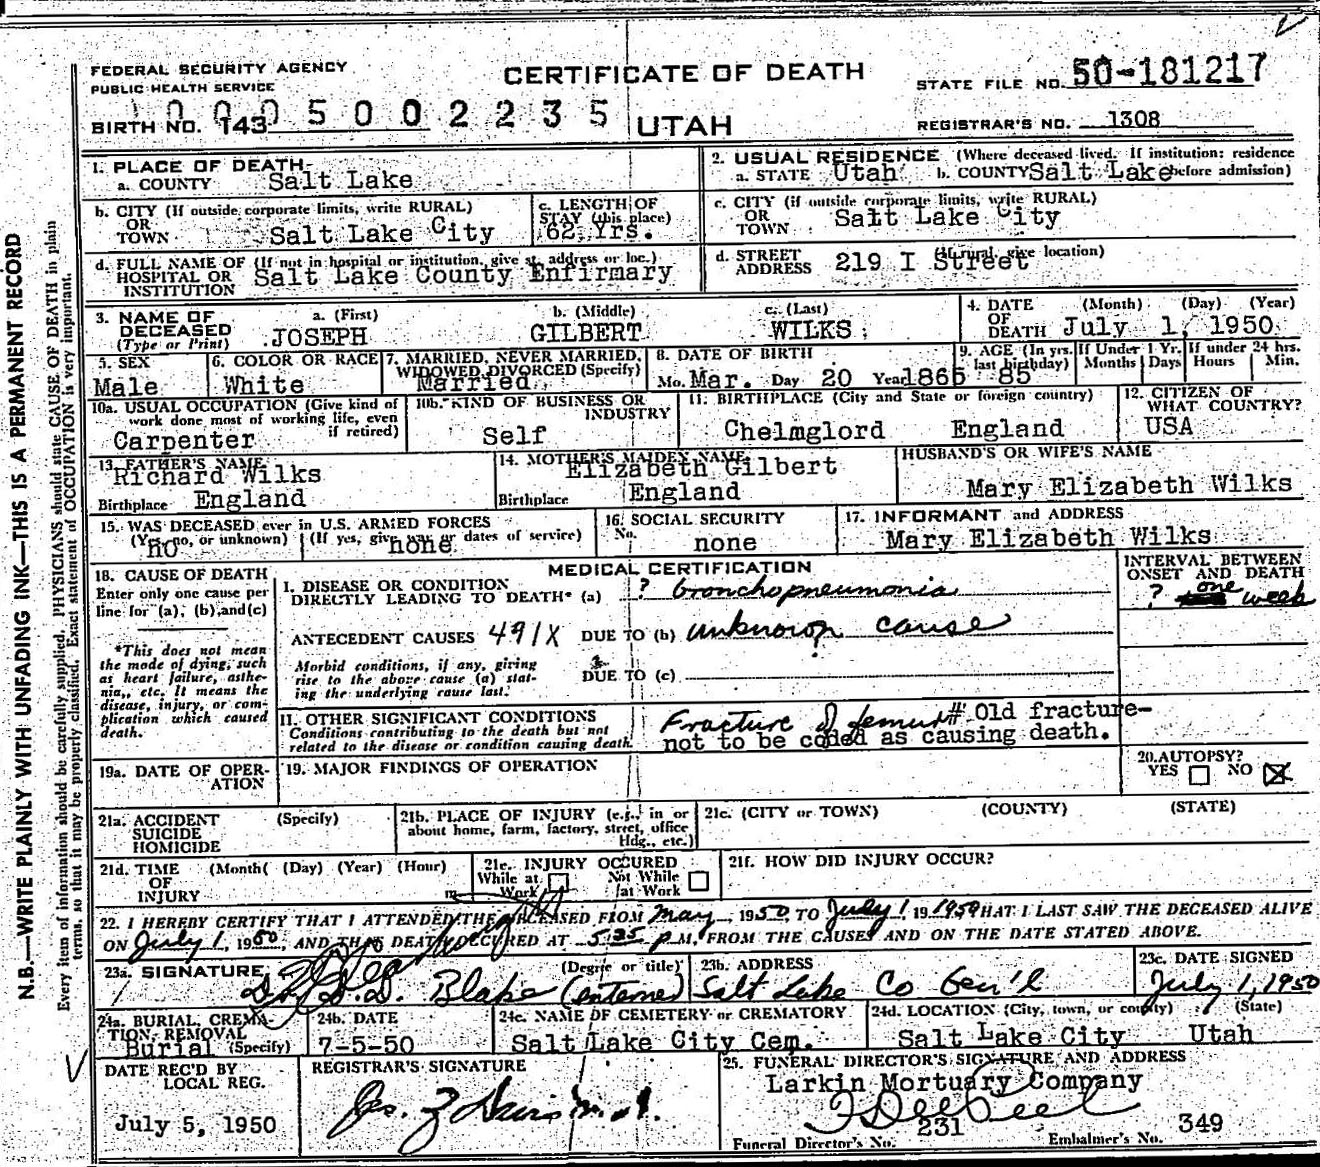 FEDERAL SECURITY AGENCY
PUBLIC HEALTH SERVICE
CERTIFICATE OF DEATH
STATE FILE NO. 50-181217
BIRTH NO. 143
0005002235
UTAH
REGISTRAR'S NO. 1308
1. PLACE OF DEATH-
a. COUNTY Salt Lake
2. USUAL RESIDENCE (Where deceased lived. If institution: residence
a. STATE Utah b. COUNTY Salt Lake before admission)
b. CITY (If outside corporate limits, write RURAL)
OR
TOWN Salt Lake City
c. LENGTH OF
STAY (this place)
62 Yrs.
c. CITY (if outside corporate limits, write RURAL)
OR
TOWN Salt Lake City
d. FULL NAME OF (If not in hospital or institution, give st. address or loc.)
HOSPITAL OR
INSTITUTION Salt Lake County Enfirmary
d. STREET (If rural, give location)
ADDRESS 219 I Street
3. NAME OF
DECEASED
(Type or Print)
a. (First) JOSEPH
b. (Middle) GILBERT
c. (Last) WILKS
4. DATE (Month) (Day) (Year)
OF
DEATH July 1, 1950
5. SEX
Male
6. COLOR OR RACE
White
7. MARRIED, NEVER MARRIED,
WIDOWED, DIVORCED (Specify)
Married
8. DATE OF BIRTH
Mo. Mar. Day 20 Year 1865
9. AGE (In yrs. last birthday)
85
If Under 1 Yr.
Months Days
If under 24 hrs.
Hours Min.
10a. USUAL OCCUPATION (Give kind of
work done most of working life, even
if retired)
Carpenter
10b. KIND OF BUSINESS OR
INDUSTRY
Self
11. BIRTHPLACE (City and State or foreign country)
Chelmglord England
12. CITIZEN OF
WHAT COUNTRY?
USA
13. FATHER'S NAME
Richard Wilks
Birthplace England
14. MOTHER'S MAIDEN NAME
Elizabeth Gilbert
Birthplace England
HUSBAND'S OR WIFE'S NAME
Mary Elizabeth Wilks
15. WAS DECEASED ever in U.S. ARMED FORCES
(Yes, no, or unknown) (If yes, give war or dates of service)
no none
16. SOCIAL SECURITY
No.
none
17. INFORMANT and ADDRESS
Mary Elizabeth Wilks
18. CAUSE OF DEATH
Enter only one cause per
line for (a), (b), and (c)
*This does not mean
the mode of dying, such
as heart failure, asthe-
nia,, etc. It means the
disease, injury, or com-
plication which caused
death.
MEDICAL CERTIFICATION
INTERVAL BETWEEN
ONSET AND DEATH
I. DISEASE OR CONDITION
DIRECTLY LEADING TO DEATH* (a) ? bronchopneumonia
? one week
ANTECEDENT CAUSES 491X DUE TO (b) unknown cause
?
Morbid conditions, if any, giving
rise to the above cause (a) stat-
ing the underlying cause last.
DUE TO (c)
11. OTHER SIGNIFICANT CONDITIONS
Conditions contributing to the death but not
related to the disease or condition causing death.
Fracture of femur # Old fracture-
not to be coded as causing death.
19a. DATE OF OPER-
ATION
19. MAJOR FINDINGS OF OPERATION
20. AUTOPSY?
YES NO X
21a. ACCIDENT (Specify)
SUICIDE
HOMICIDE
21b. PLACE OF INJURY (e.g., in or
about home, farm, factory, street, office
bldg., etc.)
21c. (CITY or TOWN) (COUNTY) (STATE)
21d. TIME (Month) (Day) (Year) (Hour)
OF
INJURY m
21e. INJURY OCCURED
While at Work
Not While at Work
21f. HOW DID INJURY OCCUR?
22. I HEREBY CERTIFY THAT I ATTENDED THE DECEASED FROM May, 1950, TO July 1, 19 1950 THAT I LAST SAW THE DECEASED ALIVE
ON July 1, 1950, AND THAT DEATH OCCURED AT 5:35 P.M., FROM THE CAUSES AND ON THE DATE STATED ABOVE.
23a. SIGNATURE (Degree or title)
Blake (interne)
23b. ADDRESS
Salt Lake Co Gen'l
23c. DATE SIGNED
July 1, 1950
24a. BURIAL, CREMA-
TION, REMOVAL
Burial (Specify)
24b. DATE
7-5-50
24c. NAME OF CEMETERY or CREMATORY
Salt Lake City Cem.
24d. LOCATION (City, town, or county) (State)
Salt Lake City Utah
DATE REC'D BY
LOCAL REG.
July 5, 1950
REGISTRAR'S SIGNATURE
25. FUNERAL DIRECTOR'S SIGNATURE AND ADDRESS
Larkin Mortuary Company
Funeral Director's No. 231
Embalmer's No. 349
N.B.—WRITE PLAINLY WITH UNFADING INK—THIS IS A PERMANENT RECORD
Every item of information should be carefully supplied. PHYSICIANS should state CAUSE OF DEATH in plain
terms, so that it may be properly classified. Exact statement of OCCUPATION is very important.